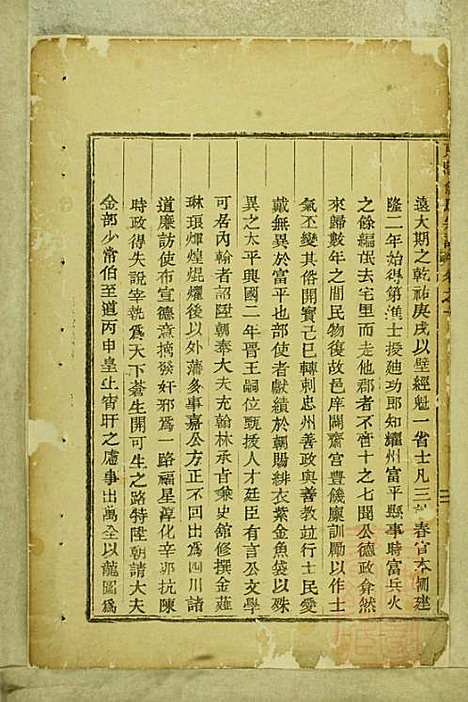 遠大期之乾祐庚戌以壁經魁一省士凡三
春官本朝建
隆二年始得第進士授廸功郎知耀州富平縣事時富兵火
之餘編氓去宅里而走他郡者不啻十之七聞公德政僉然
來歸數年之間民物復故邑庠闢齋宮豐饑廩訓勵以作士
氣丕變其俗開寶己巳轉刺忠州善政與善教竝行士民愛
戴無異於富平也部使者獻績於朝賜緋衣紫金魚袋以殊
異之太平興國二年晉王嗣位甄拔人才廷臣有言公文學
可居內翰者詔陞朝奉大夫充翰林承旨兼史舘修撰金薤
琳琅煇煌焜耀後以外藩多事嘉公方正不回出為四川諸
道廉訪使布宣德意摘發奸邪為一路福星淳化辛卯抗陳
時政得失說宰執為天下蒼生開可生之路特陞朝請大夫
金部少常伯至道丙申皇上宵旰之慮事出萬全以龍圖為